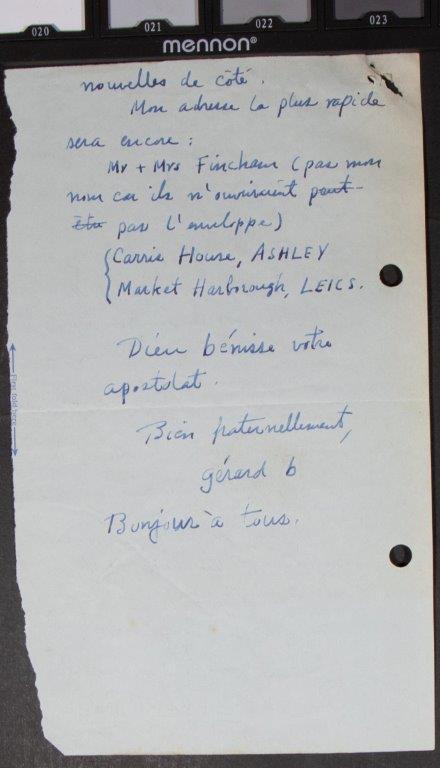 020 021 022 023
mennon®
nouvelles de côté.
Mon adresse la plus rapide
sera encore :
Mr + Mrs Fincham (pas mon
nom car ils n'ouvriraient peut-
être pas l'enveloppe)
Carrie House, ASHLEY
Market Harborough, LEICS.
Dieu bénisse votre
apostolat.
Bien fraternellement,
gérard b
Bonjour à tous.
First fold here